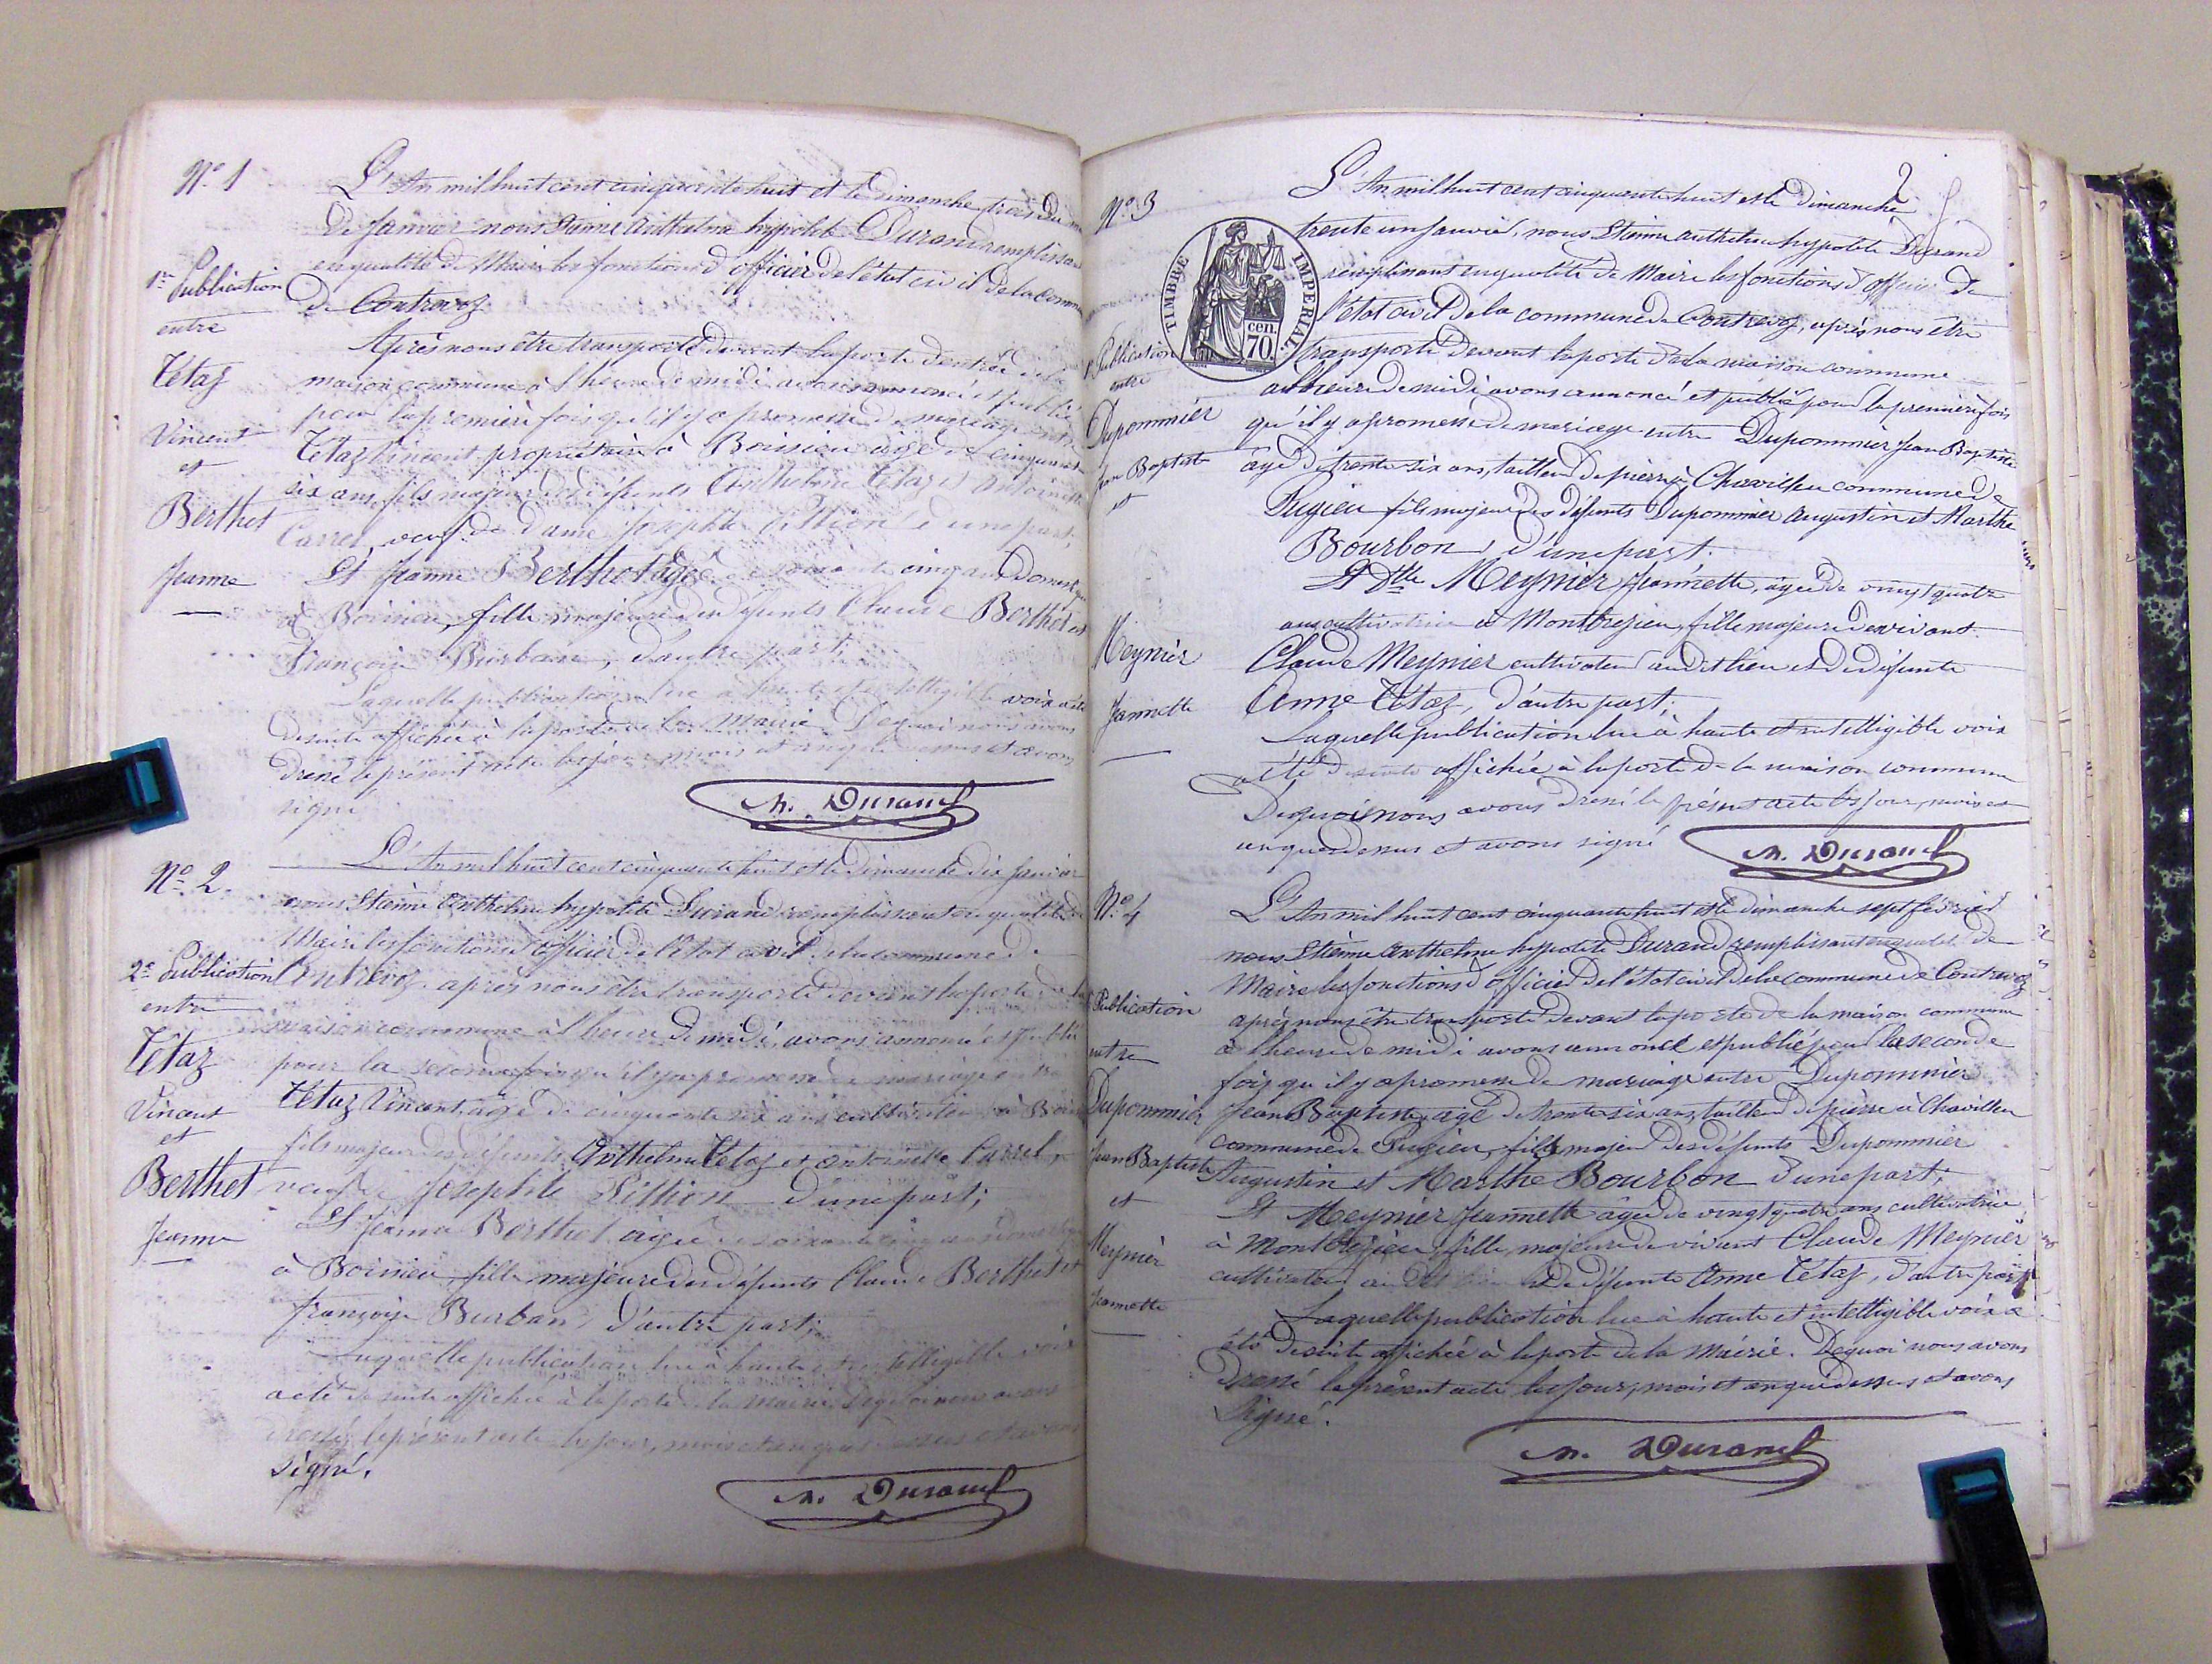 N° 1
L'An mil huit cent cinquante huit et le dimanche trois du
de Janvier nous Etienne Anthelme hypolite Durand remplissant
en qualité de Maire les fonctions d'officier de l'état civil de la commune
de Contrevoz
1re Publication
entre
Tétaz
Vincent
et
Berthet
Jeanne
Après nous être transporté devant la porte d'entrée de la
maison commune à l'heure de midi avons annoncé et publié
pour la première fois qu'il y a promesse de mariage entre
Tétaz Vincent propriétaire à Boissieu âgé de cinquante
six ans, fils majeur des défunts Anthelme Tétaz et Antoinette
Carrel, veuf de dame Josephte Pillion d'une part;
Et Jeanne Berthet âgée de soixante cinq ans Domestique
à Boissieu, fille majeure des défunts Claude Berthet et
Françoise Burban, d'autre part;
Laquelle publication lue à haute et intelligible voix a été
de suite affichée à la porte de la Mairie. De quoi nous avons
Dressé le présent acte les jour, mois et an que dessus et avons
signé
M. Durand
N° 2.
L'An mil huit cent cinquante huit et le Dimanche dix Janvier
nous Etienne Anthelme hypolite Durand remplissant en qualité de
Maire les fonctions d'officier de l'état civil de la commune de
2e Publication
entre
Tétaz
Vincent
et
Berthet
Jeanne
Contrevoz, après nous être transporté devant la porte de la
maison commune à l'heure de midi, avons annoncé et publié
pour la seconde fois qu'il y a promesse de mariage entre
Tétaz Vincent, âgé de cinquante six ans, cultivateur à Boissieu
fils majeur des défunts Anthelme Tétaz et Antoinette Carrel,
veuf de Josephte Pillion d'une part;
Et Jeanne Berthet âgée de soixante cinq ans domestique
à Boissieu, fille majeure des défunts Claude Berthet et
françoise Burban, d'autre part;
Laquelle publication lue à haute et intelligible voix
a été de suite affichée à la porte de la Mairie. De quoi nous avons
dressé le présent acte les jour, mois et an que dessus et avons
signé.
M. Durand
2
N° 3
L'An mil huit cent cinquante huit et le Dimanche
trente un Janvier, nous Etienne anthelme hypolite Durand
remplissant en qualité de Maire les fonctions d'officier de
l'état civil de la commune de Contrevoz, après nous être
transporté devant la porte de la maison commune
TIMBRE IMPERIAL
70 cen.
Publication
entre
Dupommier
Jean Baptiste
et
Meynier
Jeannette
à l'heure de midi avons annoncé et publié pour la première fois
qu'il y a promesse de mariage entre Dupommier Jean Baptiste
âgé de trente six ans, tailleur de pierre à Chavillieu commune de
Pugieu fils majeur des défunts Dupommier Augustin et Marthe
Bourbon, d'une part.
Et Dlle Meynier Jeannette, âgée de vingt quatre
ans cultivatrice à Montbrezieu, fille majeure de vivant
Claude Meynier cultivateur au dit lieu et de défunte
Anne Tétaz, d'autre part;
Laquelle publication lue à haute et intelligible voix
a été de suite affichée à la porte de la maison commune
De quoi nous avons Dressé le présent acte les jour, mois et
an que dessus et avons signé
M. Durand
N° 4
L'An mil huit cent cinquante huit et le dimanche sept février
nous Etienne Anthelme hypolite Durand remplissant en qualité de
Maire les fonctions d'officier de l'état civil de la commune de Contrevoz
Publication
entre
Dupommier
Jean Baptiste
et
Meynier
Jeannette
après nous être transporté devant la porte de la maison commune
à l'heure de midi avons annoncé et publié pour la seconde
fois qu'il y a promesse de mariage entre Dupommier
Jean Baptiste, âgé de trente six ans, tailleur de pierre à Chavillieu
commune de Pugieu, fils majeur des défunts Dupommier
Augustin et Marthe Bourbon d'une part;
Et Meynier Jeannette âgée de vingt quatre ans cultivatrice
à Montbrezieu, fille majeure de vivant Claude Meynier
cultivateur au dit lieu et de défunte Anne Tétaz, d'autre part
Laquelle publication lue à haute et intelligible voix a
été de suite affichée à la porte de la Mairie. De quoi nous avons
Dressé le présent acte les jour, mois et an que dessus et avons
Signé.
M. Durand